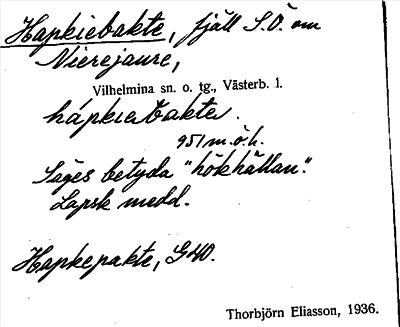 Hapkiebakte, fjäll S.Ö. om
Nierejaure,
Vilhelmina sn. o. tg., Västerb. l.
hápkιebakte.
951 m.ö.h.
Säges betyda "hökhällan".
Lapsk medd.
Hapkepakte, G40.
Thorbjörn Eliasson, 1936.